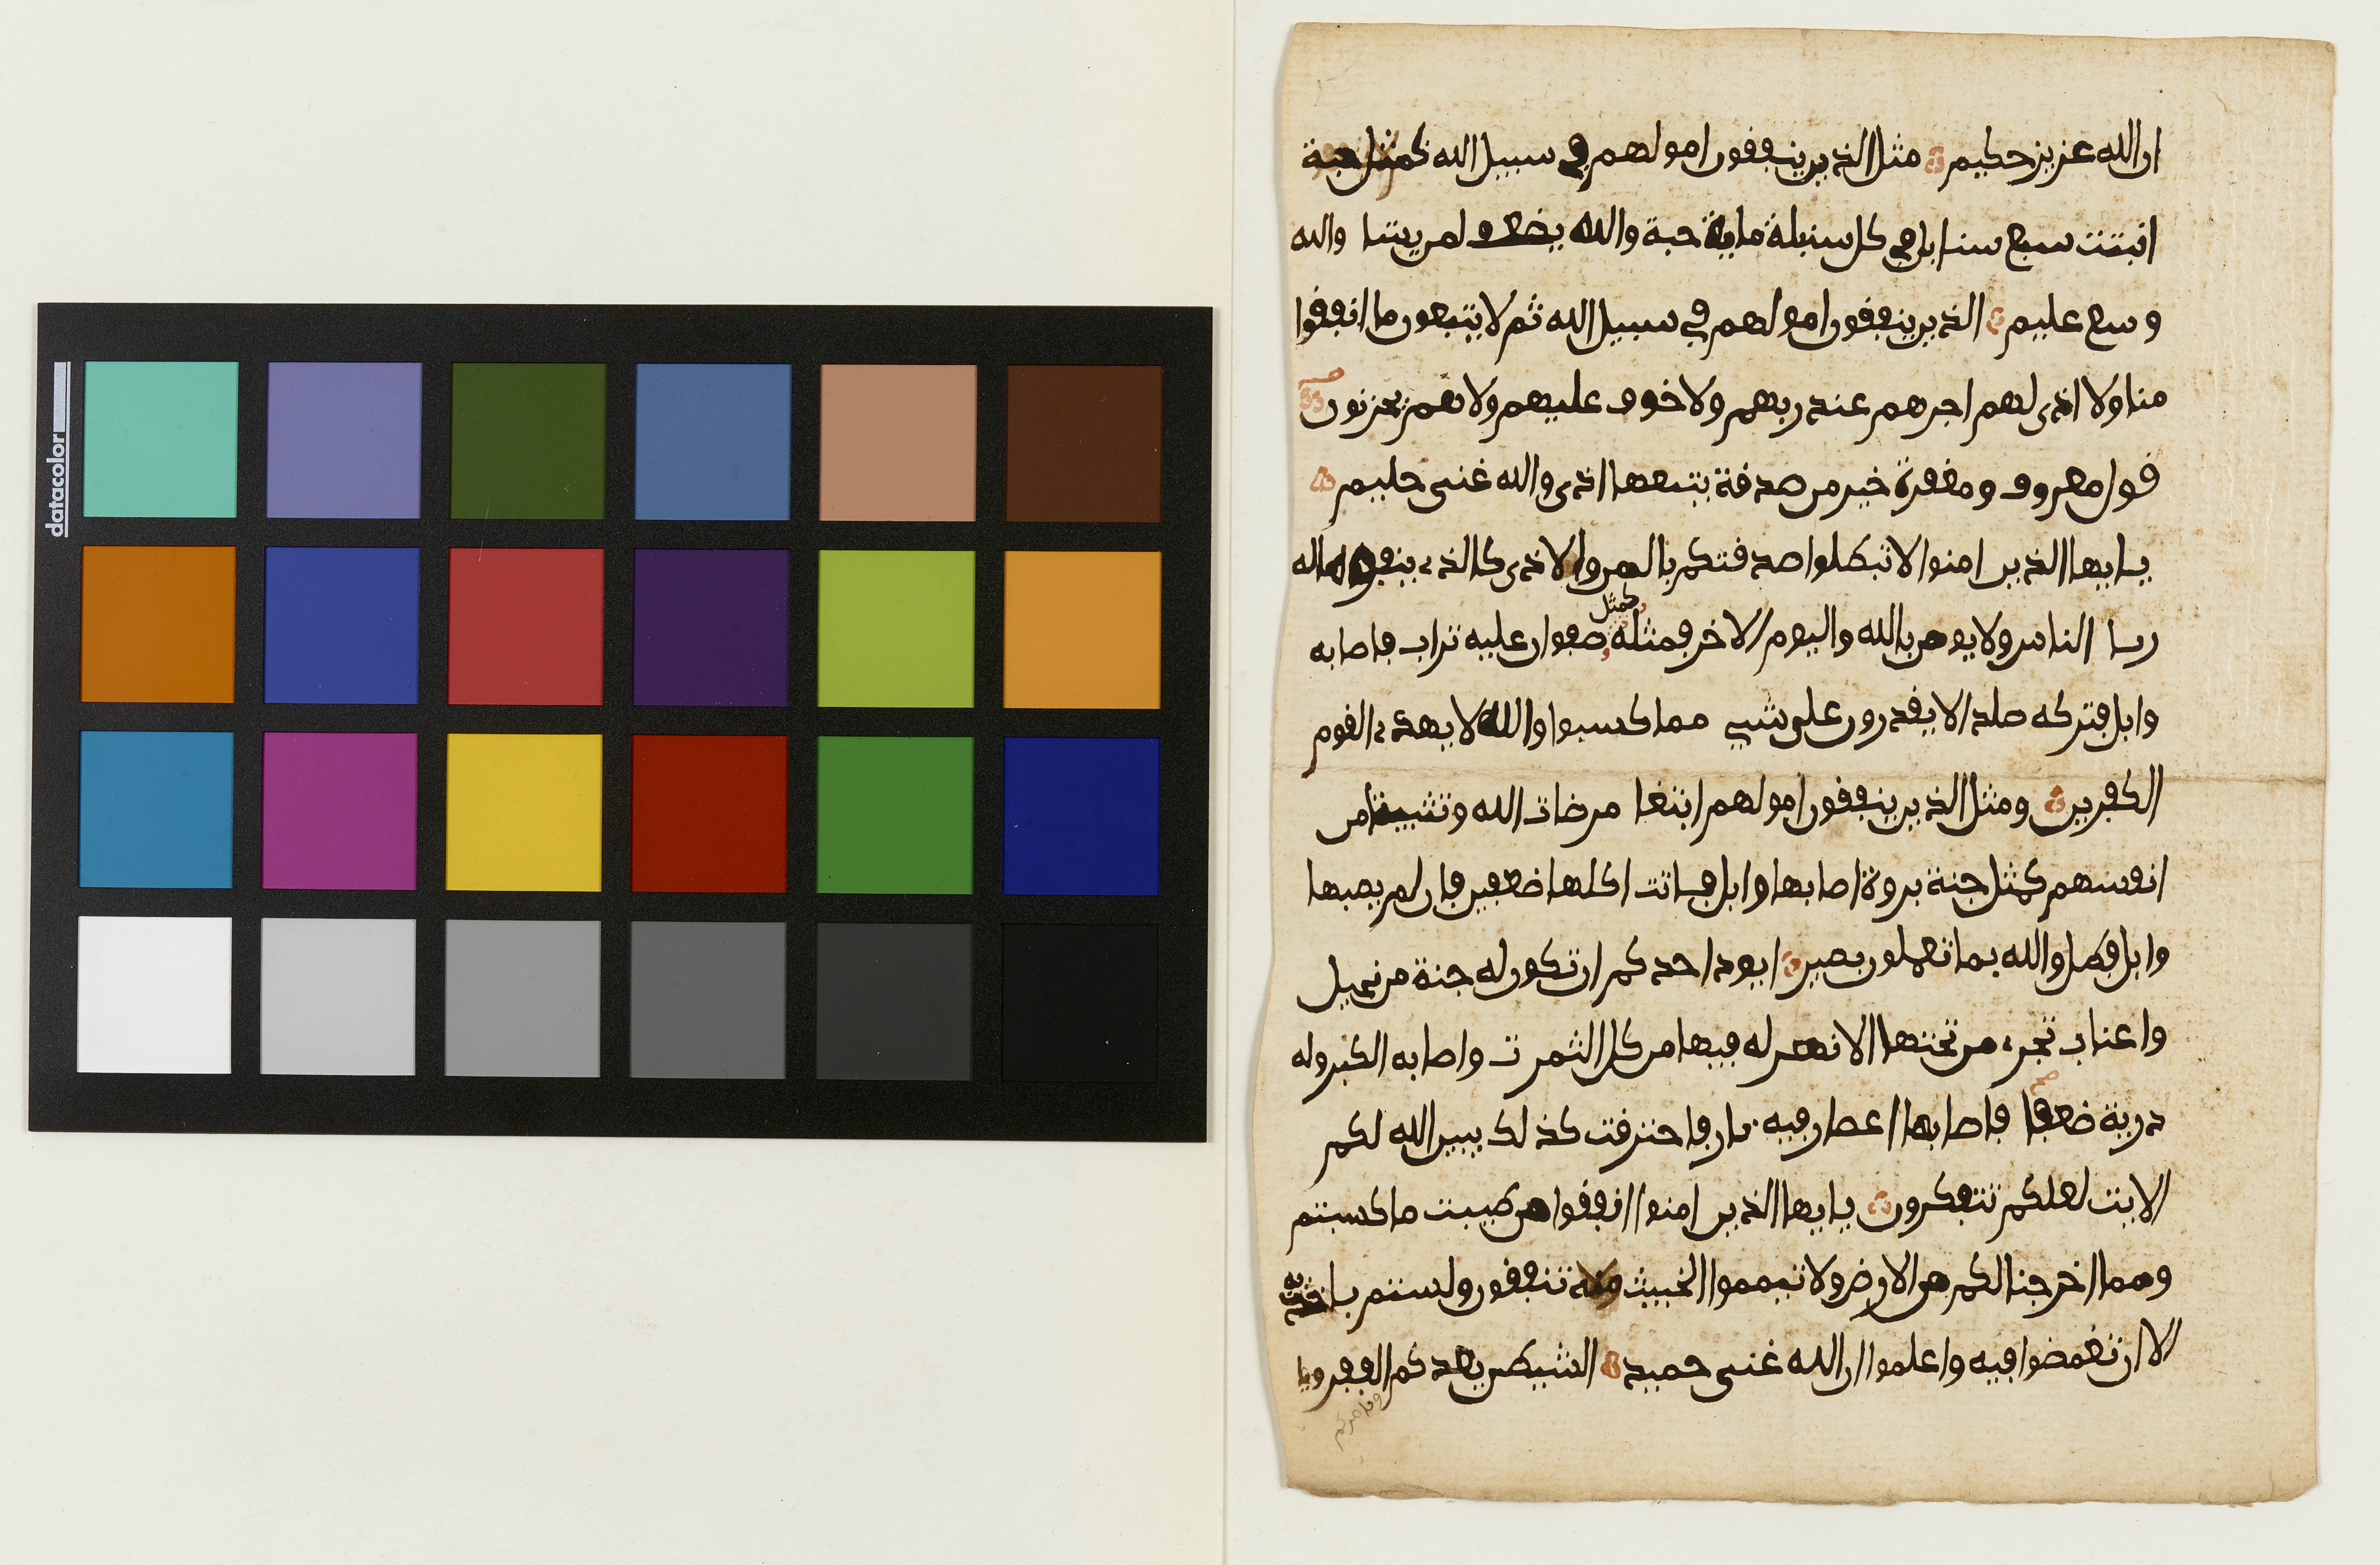 datacolor
ان الله عزيز حكيم مثل الذين ينفقون امولهم في سبيل الله كمثل حبة
انبتت سبع سنابل في كل سنبلة ماية حبة والله يضعف لمن يشا والله
وسع عليم الذين ينفقون امولهم في سبيل الله ثم لا يتبعون ما انفقوا
منا ولا اذى لهم اجرهم عند ربهم ولا خوف عليهم ولا هم يحزنون
قول معروف ومغفرة خير من صدقة يتبعها اذى والله غنى حليم
يايها الذين امنوا لا تبطلوا صدقتكم بالمن والاذى كالذى ينفق ماله
ريا الناس ولا يومن بالله واليوم الاخر فمثله كمثل صفوان عليه تراب فاصابه
وابل فتركه صلدا لا يقدرون على شيي مما كسبوا والله لا يهدى القوم
الكفرين ومثل الذين ينفقون امولهم ابتغا مرضات الله وتثبيتا من
انفسهم كمثل جنة بروة اصابها وابل فاتت اكلها ضعفين فان لم يصبها
وابل فطل والله بما تعملون بصير ايود احدكم ان تكون له جنة من نخيل
واعناب تجرى من تحتها الانهر له فيها من كل الثمرت واصابه الكبر وله
ذرية ضعفا فاصابها اعصار فيه نار فاحترقت كذلك يبين الله لكم
الايت لعلكم تتفكرون يايها الذين امنوا انفقوا من طيبت ما كسبتم
ومما اخرجنا لكم من الارض ولا تيمموا الخبيث منه تنفقون ولستم باخذيه
الا ان تغمضوا فيه واعلموا ان الله غنى حميد الشيطن يعدكم الفقر ويا
ويامركم